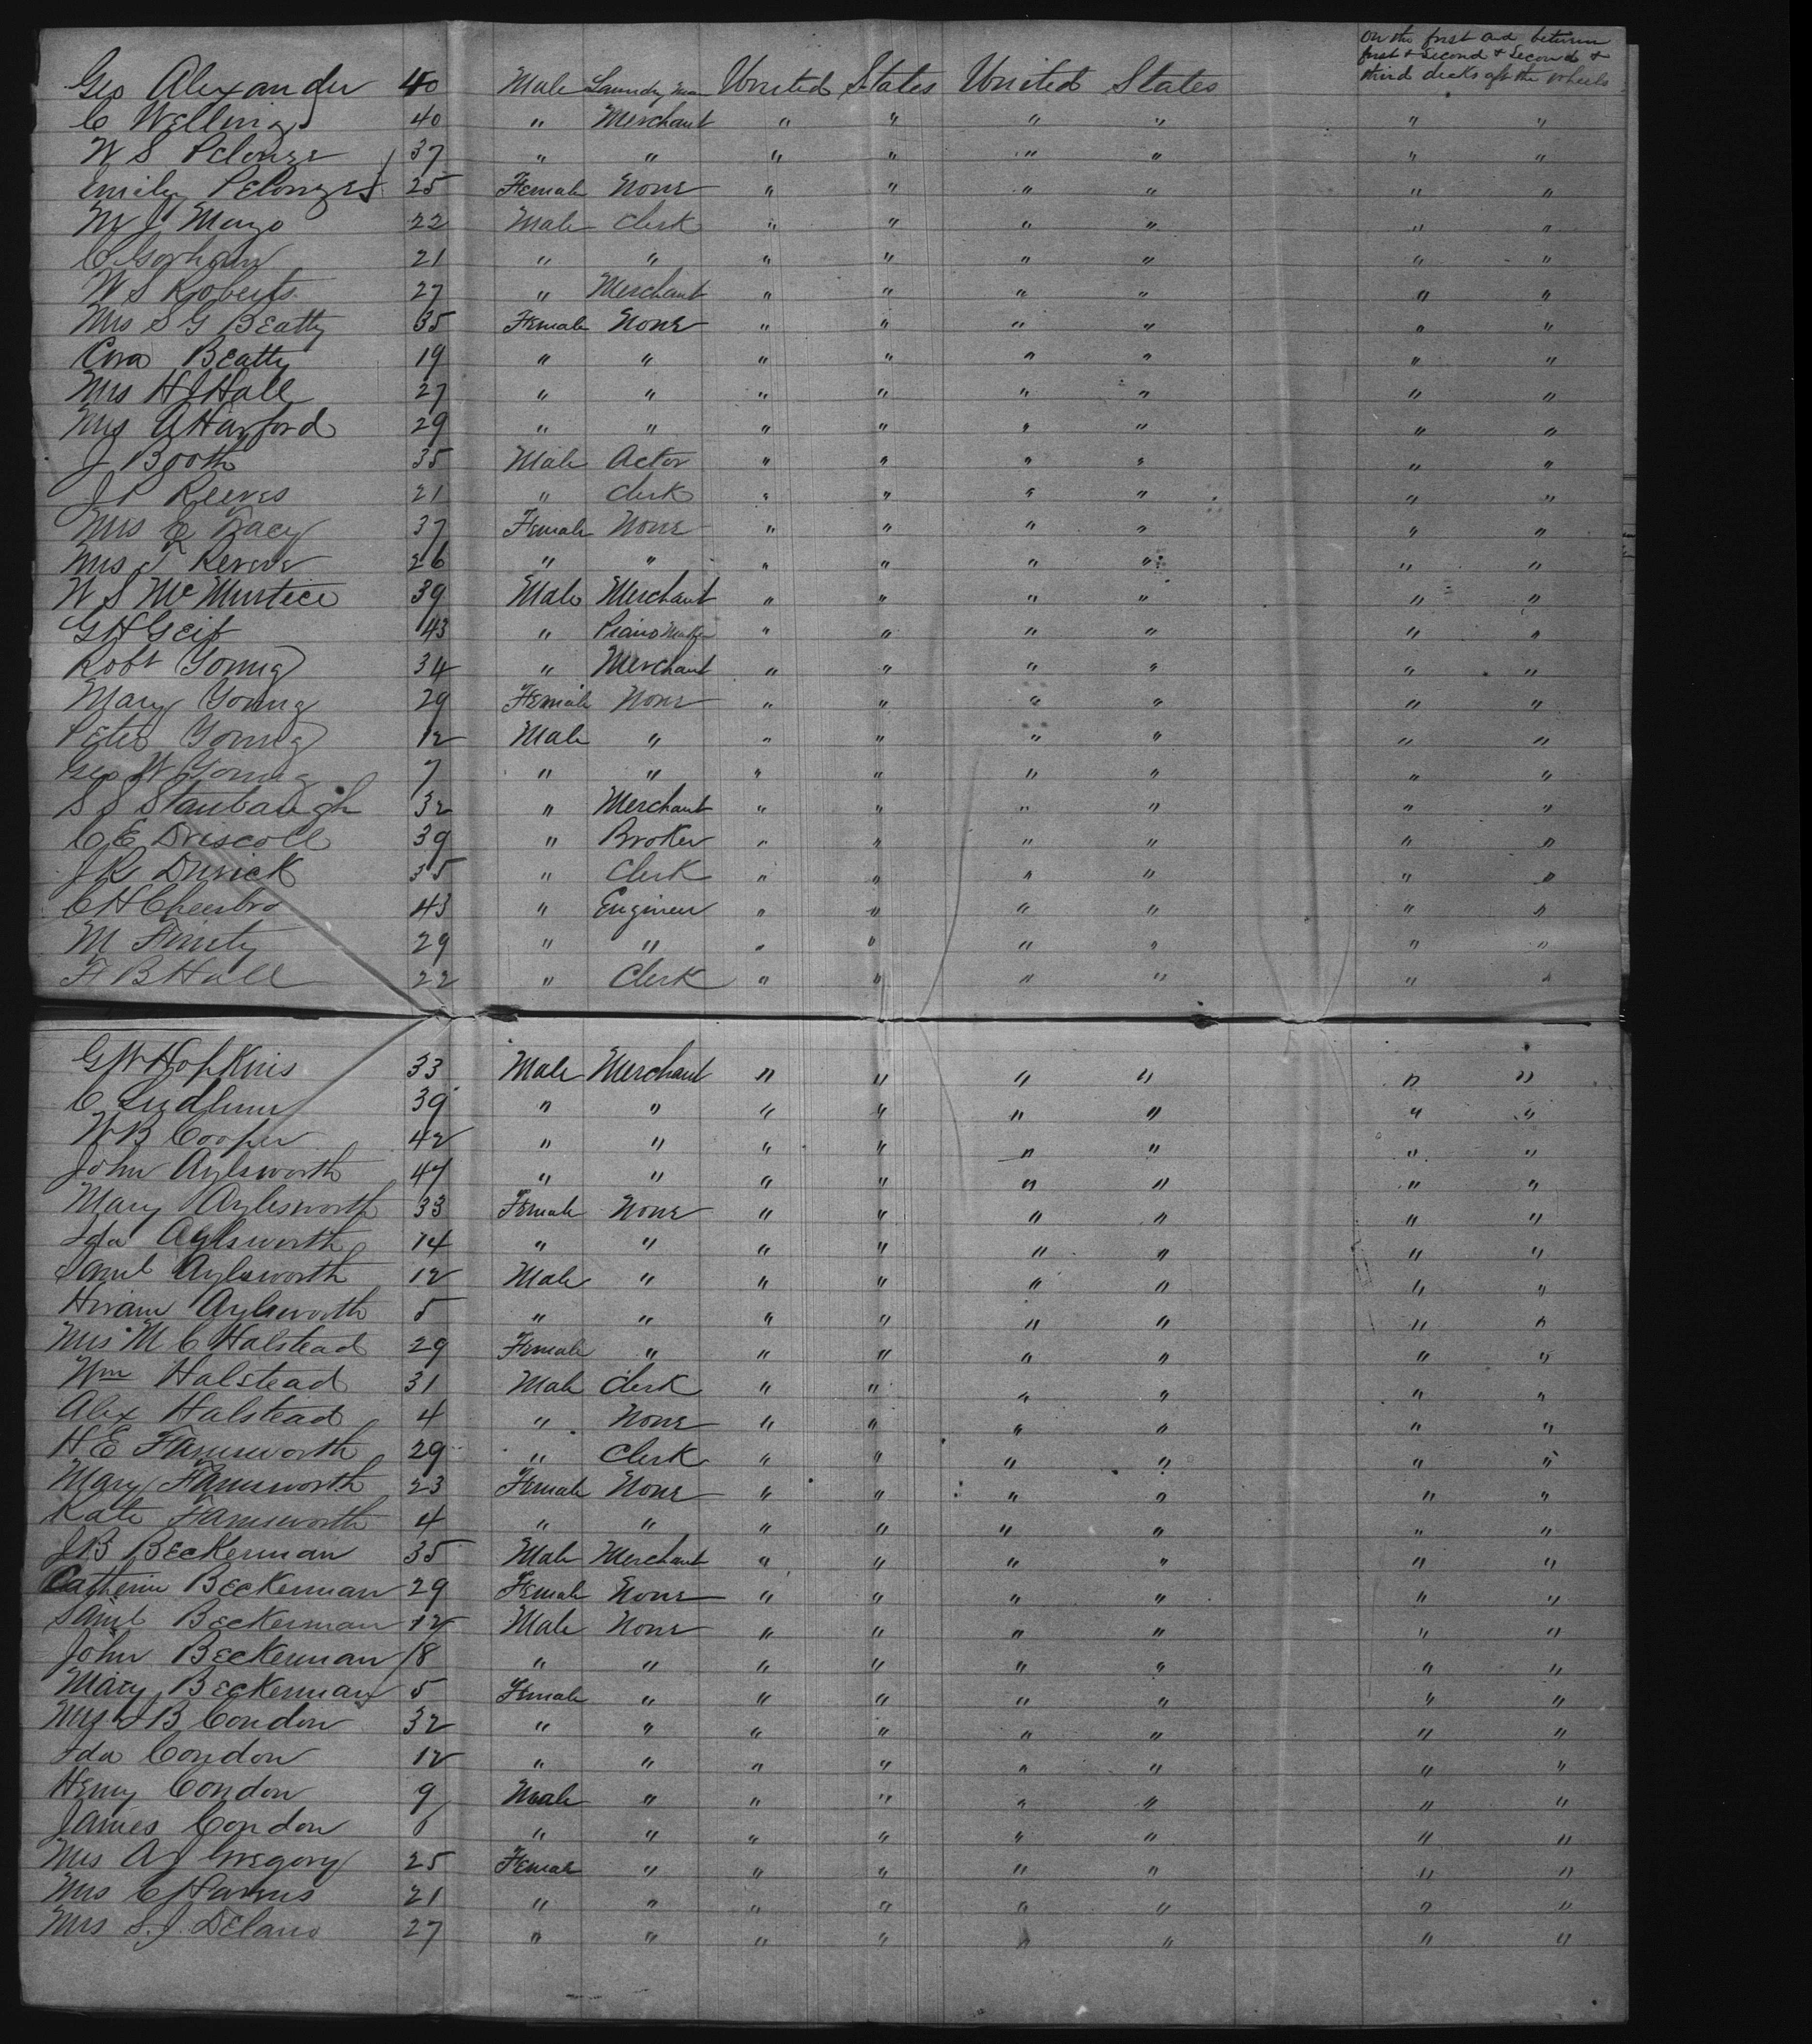 On the first and between
first & Second & Second &
third decks aft the wheels
Geo Alexander 40 Male Laundry man United States United States
C Welling 40 " Merchant " " " " " "
W S Pelouze 37 " " " " " " " "
Emily Pelouze 25 Female None " " " " " "
M J Mayo 22 Male Clerk " " " " " "
C Gorham 21 " " " " " " " "
W S Roberts 27 " Merchant " " " " " "
Mrs S G Beatty 35 Female None " " " " " "
Cora Beatty 19 " " " " " " " "
Mrs H J Hall 27 " " " " " " " "
Mrs A Harford 29 " " " " " " " "
J Booth 35 Male Actor " " " " " "
J P Reeves 21 " Clerk " " " " " "
Mrs C Tracy 37 Female None " " " " " "
Mrs T 26 " " " " " " " "
W S McMurtice 39 Male Merchant " " " " " "
G H Geib 43 " Piano Maker " " " " " "
Robt Young 34 " Merchant " " " " " "
Mary Young 29 Female None " " " " " "
Peter Young 12 Male " " " " " " "
Geo W Young 7 " " " " " " " "
S S Stanbaugh 32 " Merchant " " " " " "
C E Driscoll 39 " Broker " " " " " "
J R Durick 35 " Clerk " " " " " "
C H Cheesbro 43 " Engineer " " " " " "
M Finity 29 " " " " " " " "
F B Hall 22 " Clerk " " " " " "
G W Hopkins 33 Male Merchant " " " " " "
C Ludlum 39 " " " " " " " "
W B Cooper 42 " " " " " " " "
John Aylsworth 47 " " " " " " " "
Mary Aylesworth 33 Female None " " " " " "
Ida Aylsworth 14 " " " " " " " "
Saml Aylesworth 12 Male " " " " " " "
Hiram Aylsworth 5 " " " " " " " "
Mrs M C Halstead 29 Female " " " " " " "
Wm Halstead 31 Male Clerk " " " " " "
Alex Halstead 4 " None " " " " " "
H E Farnsworth 29 " Clerk " " " " " "
Mary Farnsworth 23 Female None " " " " " "
Kate Farnsworth 4 " " " " " " " "
J B Beckerman 35 Male Merchant " " " " " "
Catherin Beckerman 29 Female None " " " " " "
Saml Beckerman 12 Male None " " " " " "
John Beckerman 8 " " " " " " " "
Mary Beckerman 5 Female " " " " " " "
Mrs J B Condon 32 " " " " " " " "
Ida Condon 12 " " " " " " " "
Henry Condon 9 Male " " " " " " "
James Condon 6 " " " " " " " "
Mrs A J Gregory 25 Female " " " " " " "
Mrs C 21 " " " " " " " "
Mrs S. J. DeLano 27 " " " " " " " "